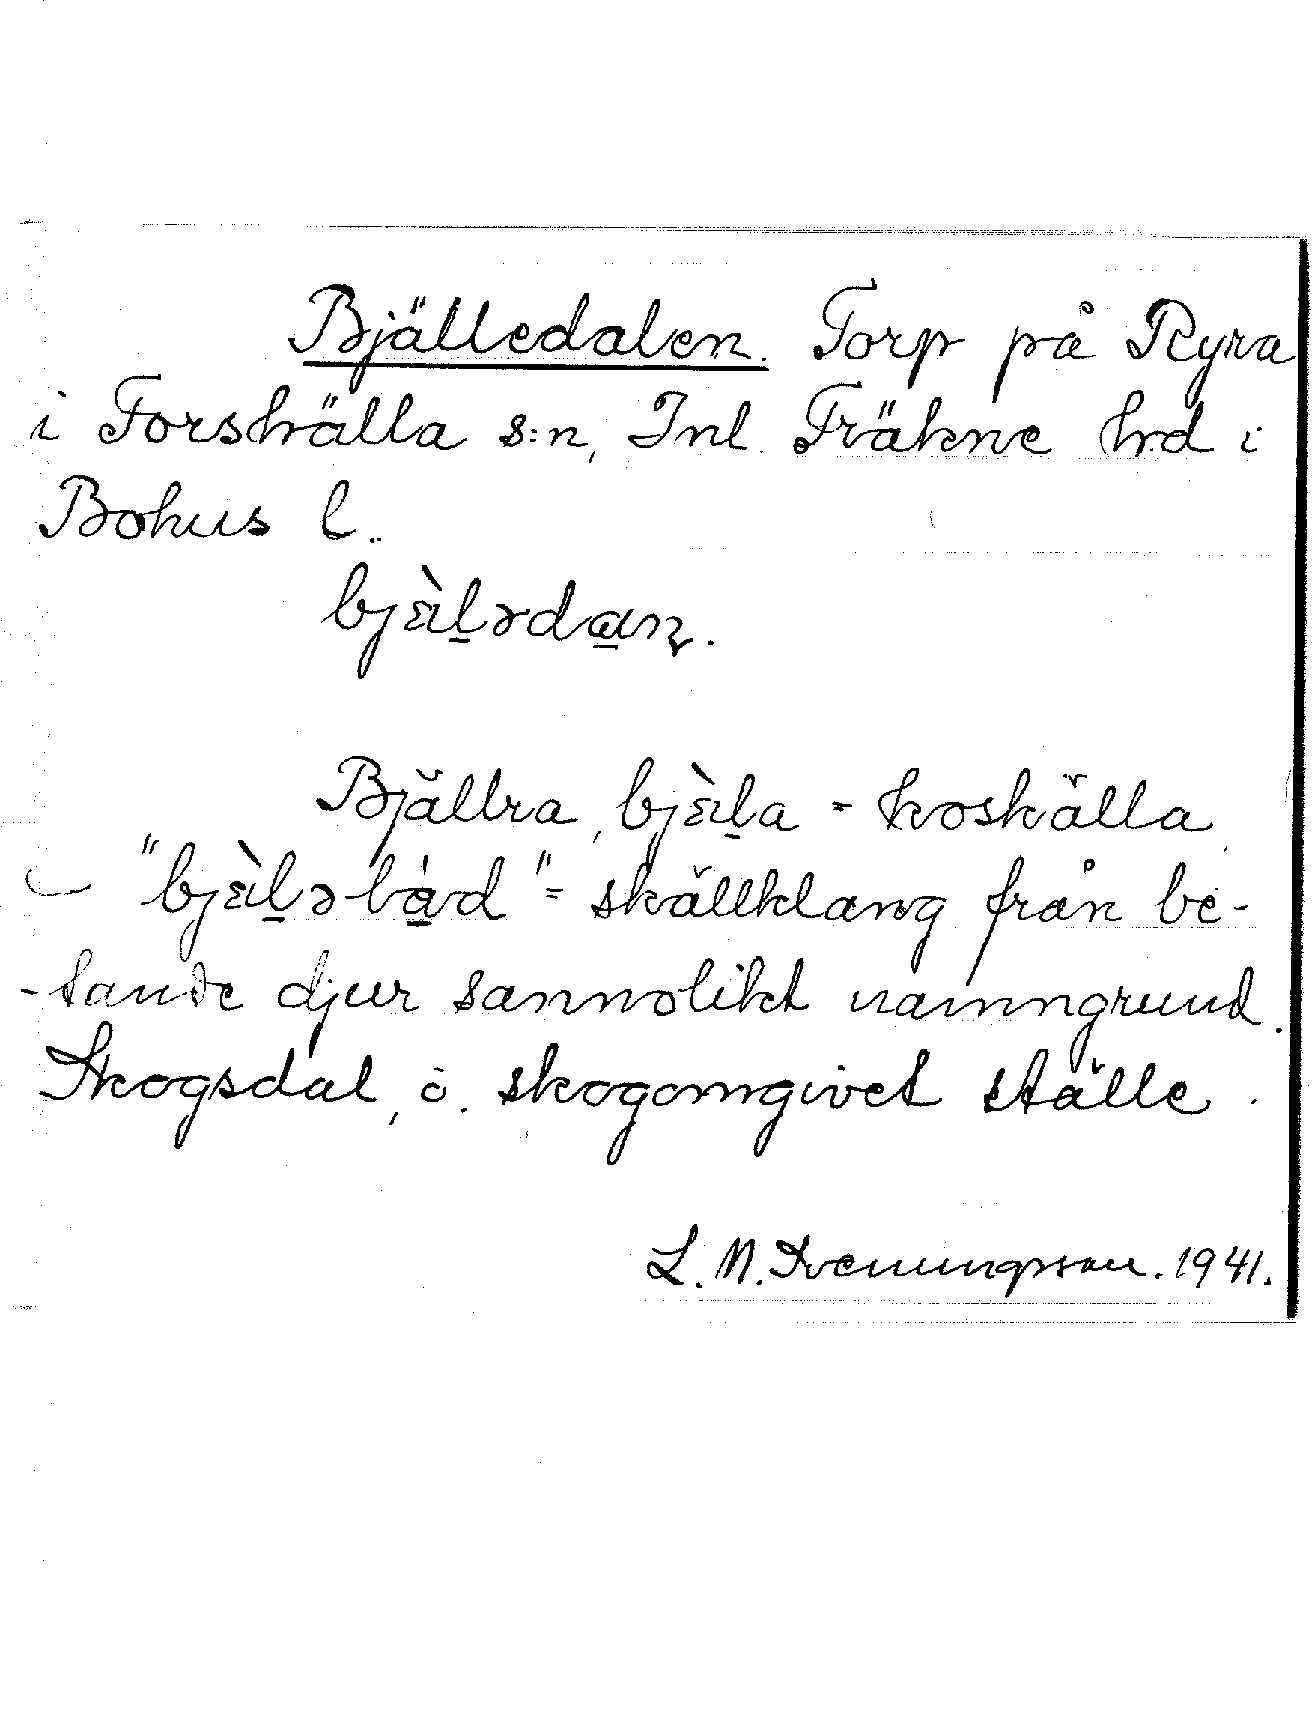 Bjälledalen. Torp på Ryra
i Forshälla s:n, Inl. Fräkne hrd i
Bohus l.
bjɛ̀ḻəda̱n.
Bjällra, bjɛ̀ḻa = koskälla,
"bjɛ̀ḻə-lå̱d" = skällklang från be-
-tande djur sannolikt namngrund.
Skogsdal, o. skogomgivet ställe.
L. N. 1941.